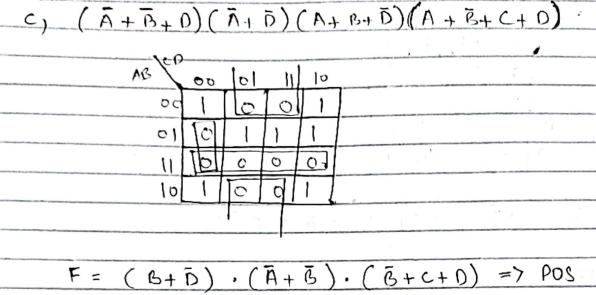 c) (Ā + B̄ + D) (Ā + D̄) (A + B + D̄) (A + B̄ + C + D)
AB CD 00 01 11 10
00 1 0 0 1
01 0 1 1 1
11 0 0 0 0
10 1 0 0 1
F = (B + D̄) · (Ā + B̄) · (B̄ + C + D) => POS